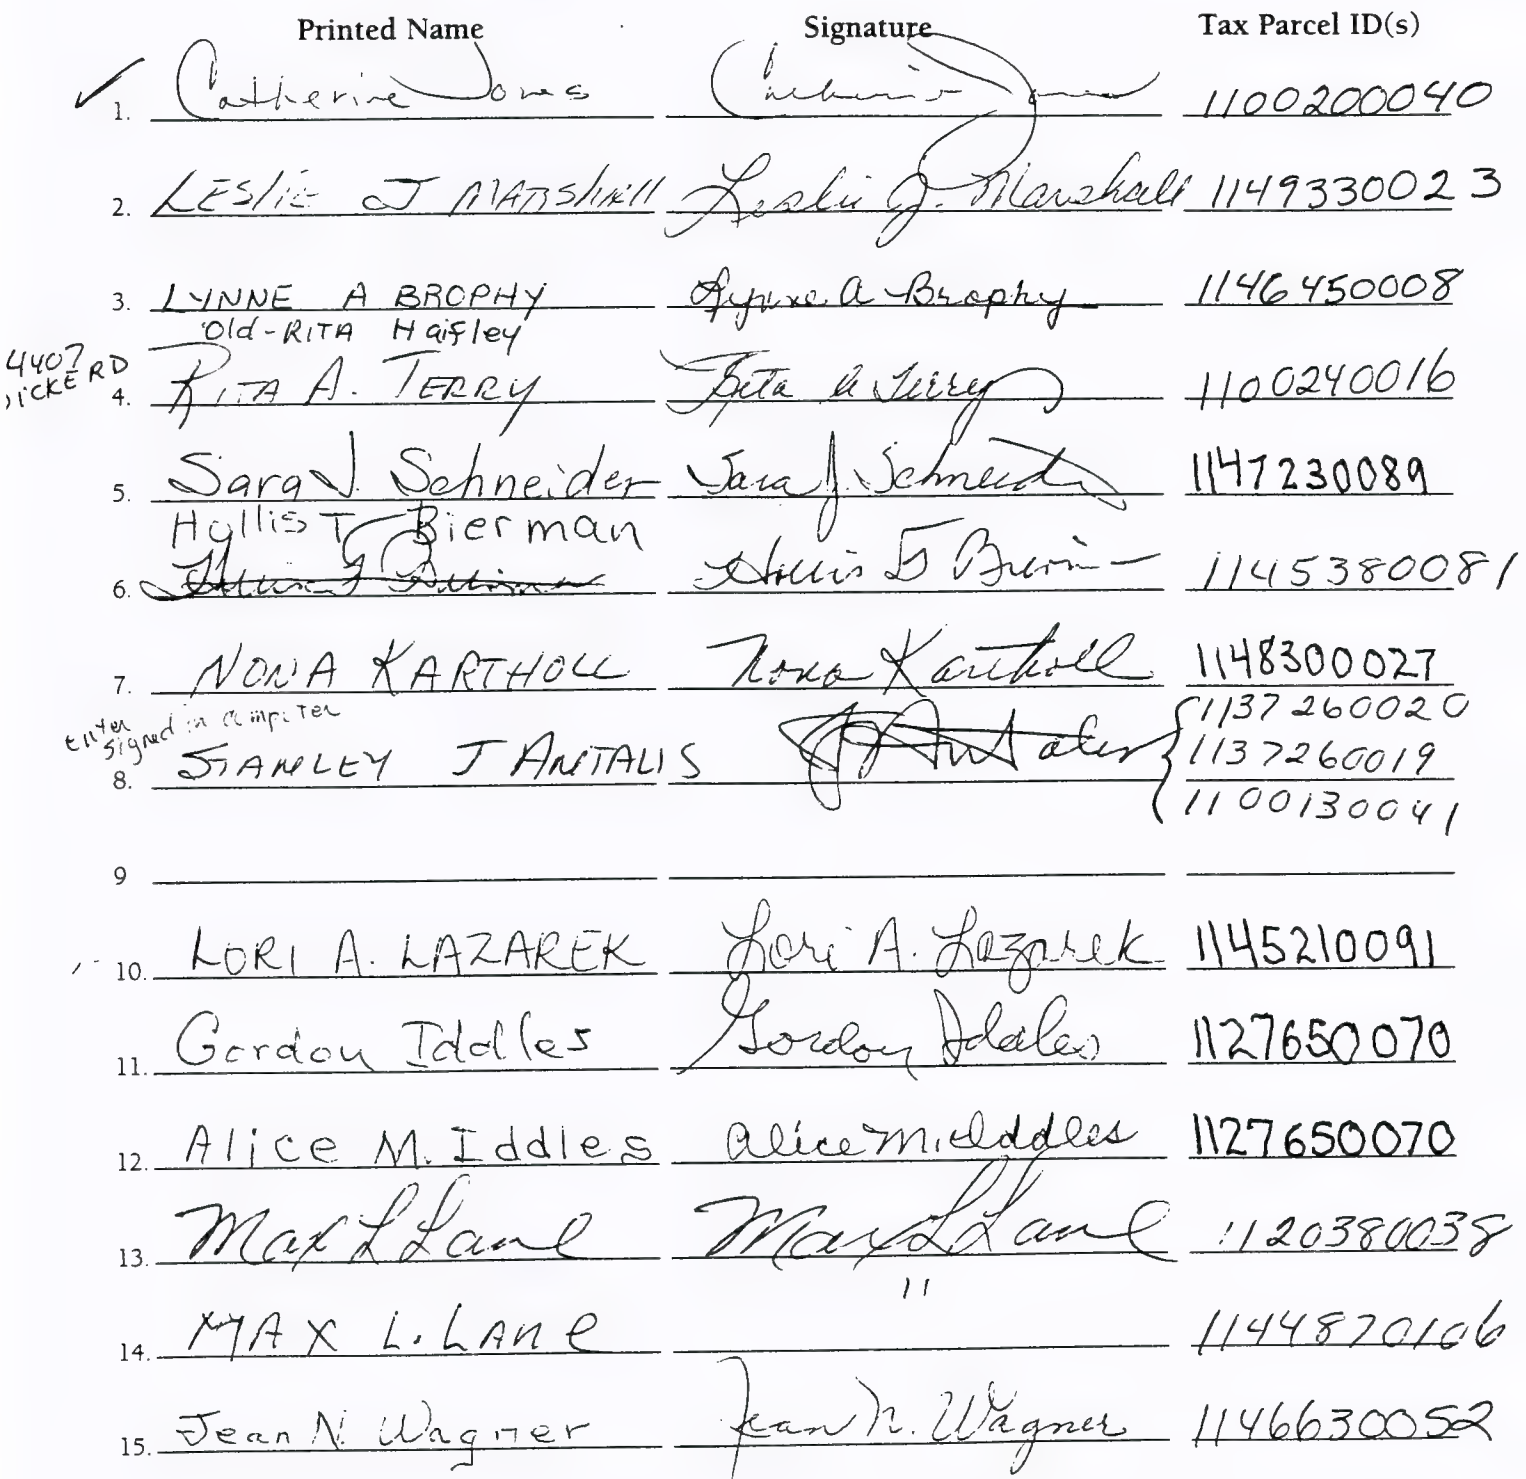 Printed Name Signature Tax Parcel ID(s)
1. Catherine Jones Catherine Jones 1100200040
2. LESliE J MARSHAll Leslie J. Marshall 1149330023
3. LYNNE A BROPHY Lynne A Brophy 1146450008
Old-RITA Haifley
4407
RD
4. RITA A. TERRY Rita A Terry 1100240016
5. Sara J. Schneider Sara J. Schneider 1147230089
Hollis T Bierman
6. Hollis T Bierman 1145380081
7. NONA KARTHOLL Nona Kartholl 1148300027
Enter signed in computer
1137260020
8. STANLEY J ANTALIS 1137260019
1100130041
9
10. LORI A. LAZAREK Lori A. Lazarek 1145210091
11. Gordon Iddles Gordon Iddles 1127650070
12. Alice M. Iddles Alice M. Iddles 1127650070
13. Max L Lane Max L Lane 1120380038
14. MAX L. LANe " 1144870106
15. Jean N. Wagner Jean N. Wagner 1146630052